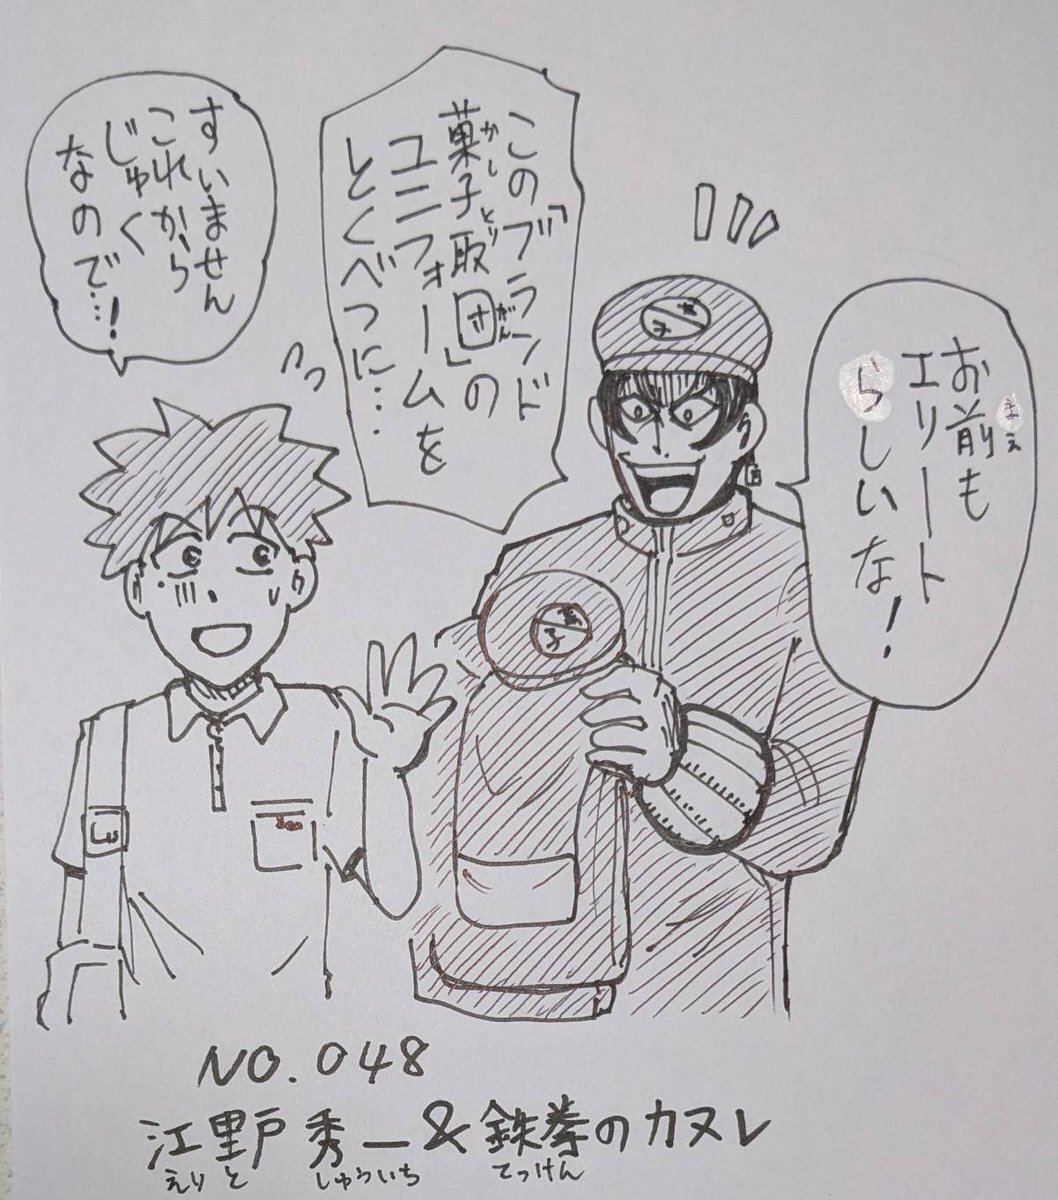 お前も
まえ
エリート
らしいな!
この「ブランド
菓子取団」の
かし とり がん
ユニフォームを
とくべつに…
すいません
これから
じゅく
なので…!
NO.048
江里戸 秀一&鉄拳のカヌレ
えりと しゅういち てっけん